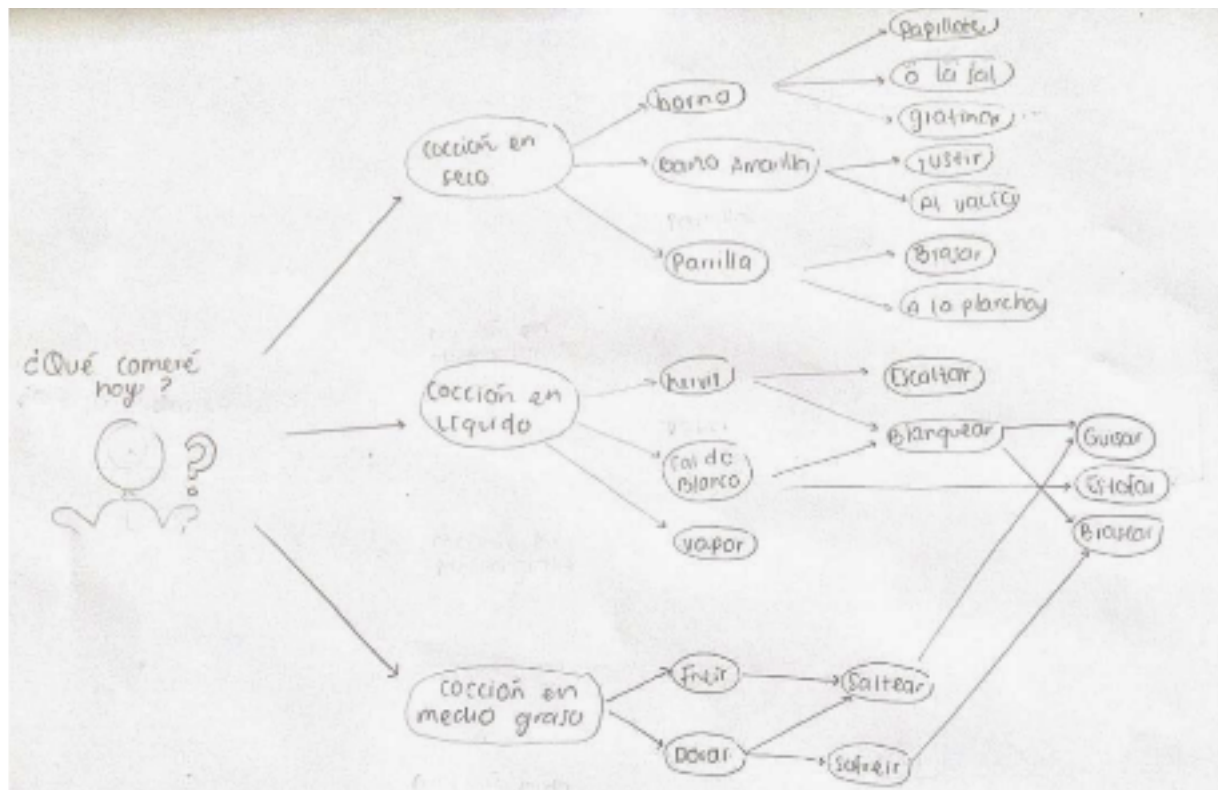 ¿Qué comeré
hoy?
?
cocción en
seco
horno
Papillote
a la sal
gratinar
baño
Al vacío
Parrilla
Brasar
A la plancha
cocción en
Líquido
hervir
Escaltar
Blanquear
caldo
Blanco
vapor
Guisar
Estofar
Brasear
cocción en
medio graso
Freír
Saltear
Dorar
Sofreír